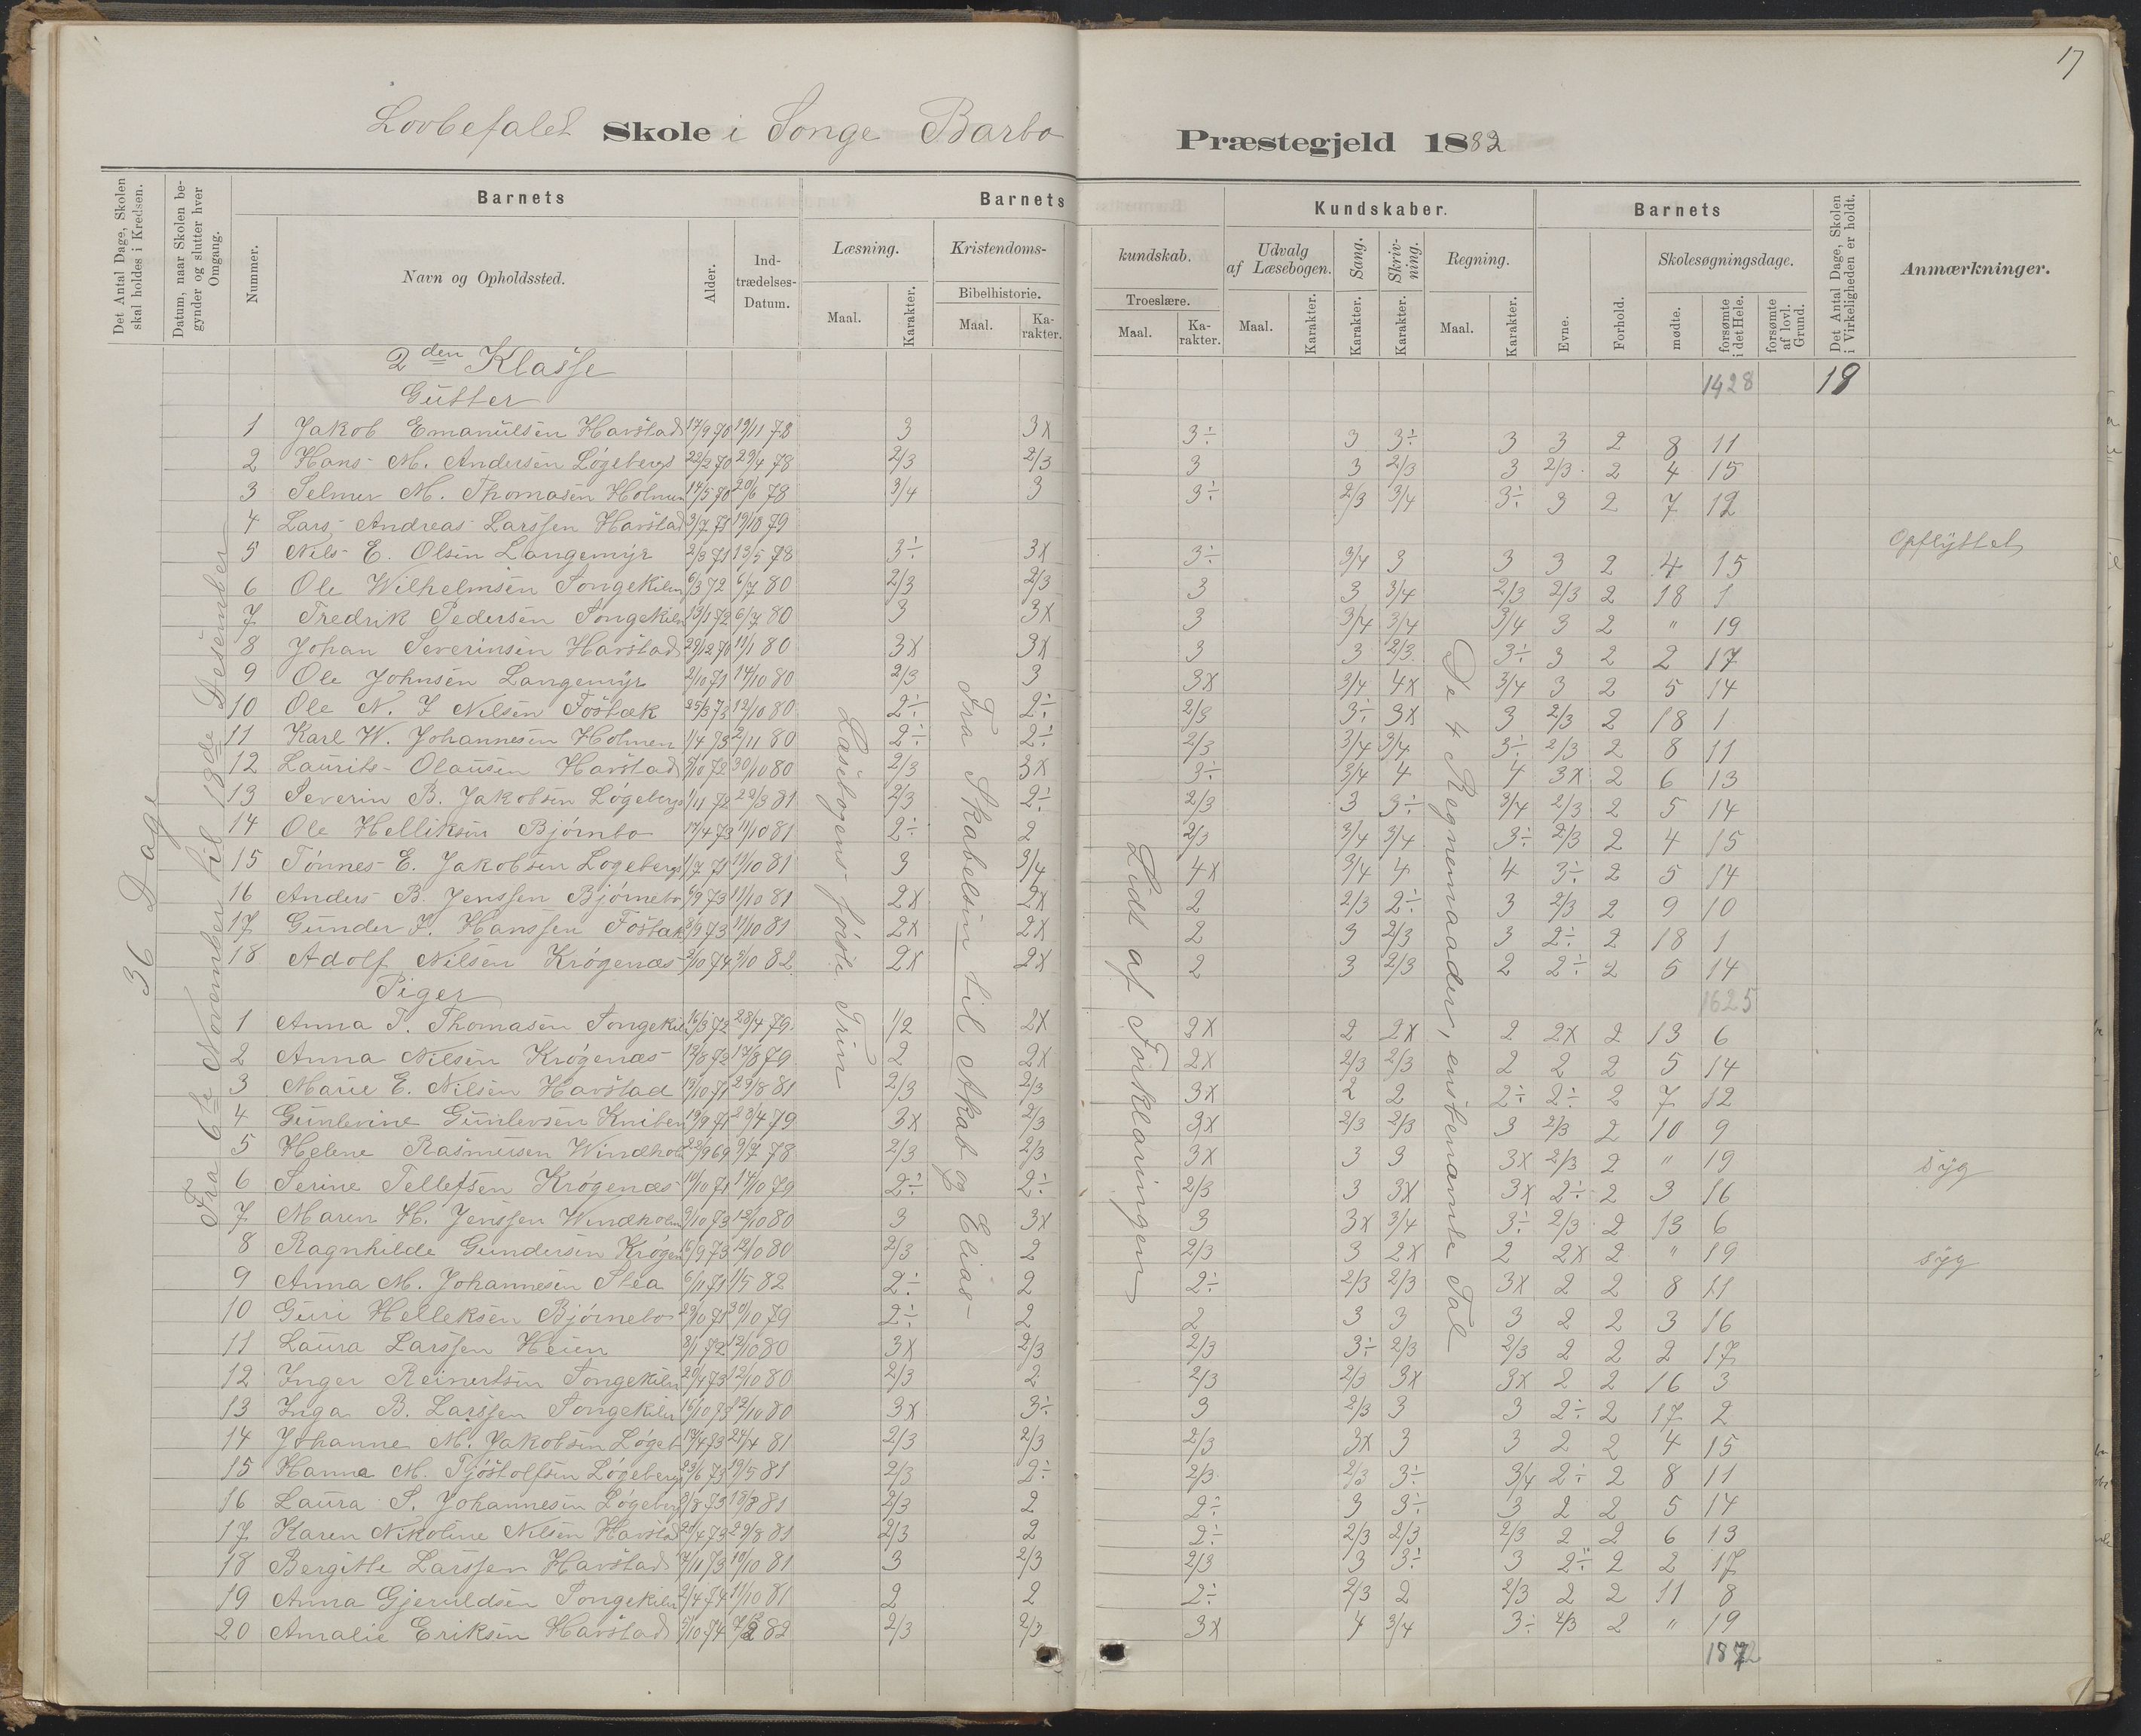 17
Lovbefalet Skole i Songe Barbo Præstegjeld 1882
Det Antal Dage, Skolen skal holdes i Kredsen.
Datum, naar Skolen begynder og slutter hver Omgang.
Nummer.
Barnets
Navn og Opholdssted.
Alder.
Indtrædelses-Datum.
Barnets
Læsning.
Maal.
Karakter.
Kristendoms-
Bibelhistorie.
Maal.
Karakter.
kundskab.
Troeslære.
Maal.
Karakter.
Kundskaber.
Udvalg af Læsebogen.
Maal.
Karakter.
Sang.
Karakter.
Skrivning.
Karakter.
Regning.
Maal.
Karakter.
Barnets
Evne.
Forhold.
Skolesøgningsdage.
mødte.
forsømte i det Hele.
forsømte af lovl. Grund.
Det Antal Dage, Skolen i Virkeligheden er holdt.
Anmærkninger.
36 Dage
Fra 6te November til 18de Desember
Læsebogens første Trin
Fra Skabelsen til Akab og Elias
Lidt af Forklaringen
De 4 Regnemaader, ensbenævnte Tal
2den Klasse
1428 19
Gutter
1 Jakob Emanuelsen Havstad 17/9 70 19/11 78 3 3x 3÷ 3 3÷ 3 3 2 8 11
2 Hans M. Andersen Løgebergs 22/2 70 29/4 78 2/3 2/3 3 3 2/3 3 2/3 2 4 15
3 Selmer M. Thomasen Holmen 14/5 70 20/6 78 3/4 3 3÷ 2/3 3/4 3÷ 3 2 7 12
4 Lars Andreas Larssen Havstad 3/7 71 19/10 79 Opflyttet
5 Nils E. Olsen Langemyr 2/3 71 13/5 78 3÷ 3x 3÷ 3/4 3 3 3 2 4 15
6 Ole Wilhelmsen Songekilen 6/3 72 6/7 80 2/3 2/3 3 3 3/4 2/3 2/3 2 18 1
7 Fredrik Pedersen Songekilen 13/1 72 6/7 80 3 3x 3 3/4 3/4 3/4 3 2 " 19
8 Johan Severinsen Havstad 29/12 70 11/1 80 3x 3x 3 3 2/3 3÷ 3 2 2 17
9 Ole Johnsen Langemyr 2/10 71 14/10 80 2/3 3 3x 3/4 4x 3/4 3 2 5 14
10 Ole N. J Nilsen Fostæk 25/3 73 12/10 80 2÷ 2÷ 2/3 3÷ 3x 3 2/3 2 18 1
11 Karl W. Johannesen Holmen 1/4 73 2/11 80 2÷ 2÷ 2/3 3/4 3/4 3÷ 2/3 2 8 11
12 Laurits Olausen Havstad 5/10 72 30/10 80 2/3 3x 3÷ 3/4 4 4 3x 2 6 13
13 Severin B. Jakobsen Løgebergs 1/11 72 29/3 81 2/3 2÷ 2/3 3 3÷ 3/4 2/3 2 5 14
14 Ole Helliksen Bjørnbo 17/4 73 11/10 81 2÷ 2 2/3 3/4 3/4 3÷ 2/3 2 4 15
15 Tønnes E. Jakobsen Løgebergs 1/7 71 11/10 81 3 3/4 4x 3/4 4 4 3÷ 2 5 14
16 Anders B. Jenssen Bjørnebo 6/9 73 11/10 81 2x 2x 2 2/3 2÷ 3 2/3 2 9 10
17 Gunder J. Hanssen Fostæk 8/9 73 11/10 81 2x 2x 2 3 2/3 3 2÷ 2 18 1
18 Adolf Nilsen Krøgenæs 3/10 74 9/10 82 2x 2x 2 3 2/3 2 2÷ 2 5 14
Piger
1625
1 Anna T. Thomasen Songekil 16/3 72 28/4 79 1/2 2x 2x 2 2x 2 2x 2 13 6
2 Anna Nilsen Krøgenæs 12/8 72 17/3 79 2 2x 2x 2/3 2/3 2 2 2 5 14
3 Marie E. Nilsen Havstad 19/10 71 29/8 81 2/3 2/3 3x 2 2 2÷ 2÷ 2 7 12
4 Gunlevine Gunlevsen Kniben 19/9 71 23/4 79 3x 2/3 3x 2/3 2/3 3 2/3 2 10 9
5 Helene Rasmusen Windholm 22/9 69 9/7 78 2/3 2/3 3x 3 3 3x 2/3 2 " 19 syg
6 Serine Tellefsen Krøgenæs 19/10 71 17/10 79 2÷ 2÷ 2/3 3 3x 3x 2÷ 2 3 16
7 Maren H. Jenssen Windholm 9/10 73 12/10 80 3 3x 3 3x 3/4 3÷ 2/3 2 13 6
8 Ragnhilde Gundersen Krøgen 16/9 73 13/10 80 2/3 2 2/3 3 2x 2 2x 2 " 19 syg
9 Anna M. Johannesen Stea 6/11 71 1/5 82 2÷ 2 2÷ 2/3 2/3 3x 2 2 8 11
10 Guri Helleksen Bjørnebo 29/10 71 30/10 79 2÷ 2 2 3 3 3 2 2 3 16
11 Laura Larssen Heien 8/1 72 12/10 80 3x 2/3 2/3 3÷ 2/3 2/3 2 2 2 17
12 Inger Reinertsen Songekilen 20/4 73 12/10 80 2/3 2 2/3 2/3 3x 3x 2 2 16 3
13 Inga B. Larssen Songekilen 15/10 73 12/10 80 3x 3÷ 3 2/3 3 3 2÷ 2 17 2
14 Johanne M. Jakobsen Løgeb 17/4 73 27/4 81 2/3 2/3 2/3 3x 3 3 2 2 4 15
15 Hanna M. Tjøstolfsen Løgebergs 23/6 73 19/5 81 2/3 2÷ 2/3 2/3 3÷ 3/4 2÷ 2 8 11
16 Laura S. Johannesen Løgeberg 8/8 73 18/8 81 2/3 2 2÷ 3 3÷ 3 2 2 5 14
17 Karen Nikoline Nilsen Havstad 21/4 73 29/8 81 2/3 2 2÷ 2/3 2/3 2/3 2 2 6 13
18 Bergitte Larssen Havstad 7/11 73 10/10 81 3 2/3 2/3 3 3÷ 3 2÷ 2 2 17
19 Anna Gjeruldsen Songekilen 2/4 74 11/10 81 2 2 2÷ 2/3 2 2/3 2 2 11 8
20 Amalie Eriksen Havstad 5/10 74 82 2/3 2/3 3x 4 3/4 3÷ 2/3 2 " 19
1872